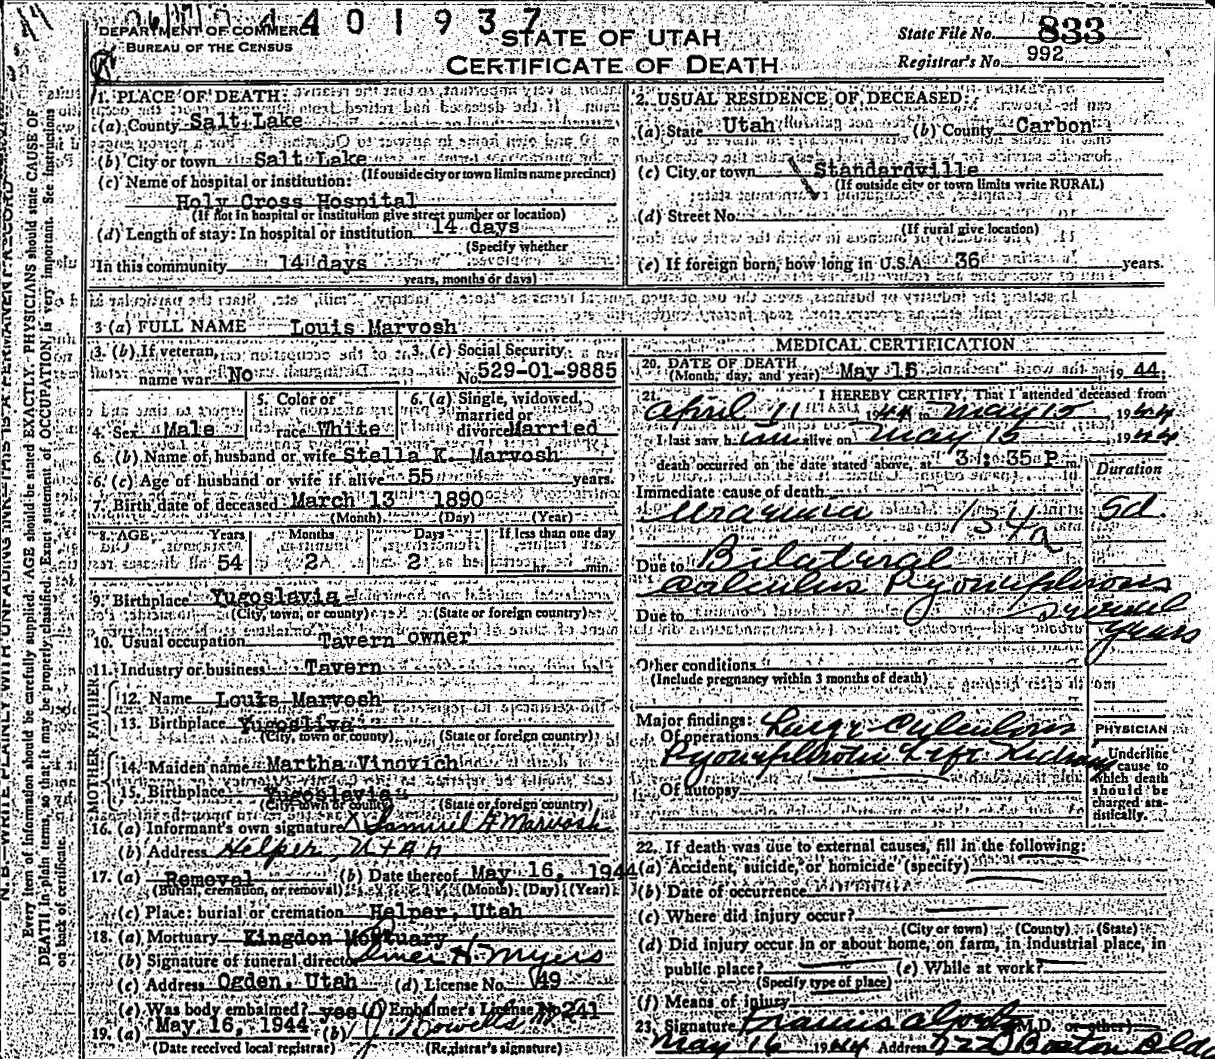 4 4 0 1 9 3 7
DEPARTMENT OF COMMERCE
BUREAU OF THE CENSUS
STATE OF UTAH
CERTIFICATE OF DEATH
State File No. 833
Registrar's No. 992
N. B.—WRITE PLAINLY WITH UNFADING INK—THIS IS A PERMANENT RECORD
Every item of information should be carefully supplied. AGE should be stated EXACTLY. PHYSICIANS should state CAUSE OF
DEATH in plain terms, so that it may be properly classified. Exact statement of OCCUPATION is very important. See instructions
on back of certificate.
1. PLACE OF DEATH:
(a) County Salt Lake
(b) City or town Salt Lake
(If outside city or town limits name precinct)
(c) Name of hospital or institution:
Holy Cross Hospital
(If not in hospital or institution give street number or location)
(d) Length of stay: In hospital or institution 14 days
(Specify whether
In this community 14 days
years, months or days)
2. USUAL RESIDENCE OF DECEASED:
(a) State Utah (b) County Carbon
(c) City or town Standardville
(If outside city or town limits write RURAL)
(d) Street No.
(If rural give location)
(e) If foreign born, how long in U.S.A. 36 years.
3 (a) FULL NAME Louis Marvosh
3. (b) If veteran, name war No
3. (c) Social Security No. 529-01-9885
4. Sex Male
5. Color or race White
6. (a) Single, widowed, married or divorced Married
6. (b) Name of husband or wife Stella K. Marvosh
6. (c) Age of husband or wife if alive 55 years.
7. Birth date of deceased March 13 1890
(Month) (Day) (Year)
8. AGE Years Months Days If less than one day
54 2 2 hr. min.
9. Birthplace Yugoslavia
(City, town, or county) (State or foreign country)
10. Usual occupation Tavern owner
11. Industry or business Tavern
FATHER
12. Name Louis Marvosh
13. Birthplace Yugosliva
(City, town or county) (State or foreign country)
MOTHER
14. Maiden name Martha Vinovich
15. Birthplace Yugoslavia
(City, town or county) (State or foreign country)
16. (a) Informant's own signature X Samuel Marvosh
(b) Address Helper, Utah
17. (a) Removal (b) Date thereof May 16, 1944
(Burial, cremation, or removal) (Month) (Day) (Year)
(c) Place: burial or cremation Helper, Utah
18. (a) Mortuary Kingdon Mortuary
(b) Signature of funeral director Elmer H. Myers
(c) Address Ogden, Utah (d) License No. 49
(e) Was body embalmed? yes (f) Embalmer's License No 241
19. (a) May 16, 1944 (b)
(Date received local registrar) (Registrar's signature)
MEDICAL CERTIFICATION
20. DATE OF DEATH
(Month, day, and year) May 15 19 44
21. I HEREBY CERTIFY, That I attended deceased from
April 11 1944 to May 15 1944
I last saw him alive on May 15, 1944
death occurred on the date stated above, at 31: 35 P m. Duration
Immediate cause of death
Uraemia 134a 5d.
Due to Bilateral
Calculus Pyonephrosis
Due to several
years
Other conditions
(Include pregnancy within 3 months of death)
Major findings:
Of operations Large Calculous
Pyonephrotic Left Kidney
Of autopsy
PHYSICIAN
Underline
cause to
which death
should be
charged sta-
tistically.
22. If death was due to external causes, fill in the following:
(a) Accident, suicide, or homicide (specify)
(b) Date of occurrence
(c) Where did injury occur?
(City or town) (County) (State)
(d) Did injury occur in or about home, on farm, in industrial place, in
public place? (e) While at work?
(Specify type of place)
(f) Means of injury
23. Signature Francis M.D. or other)
May 16 1944 Address Boston Bldg